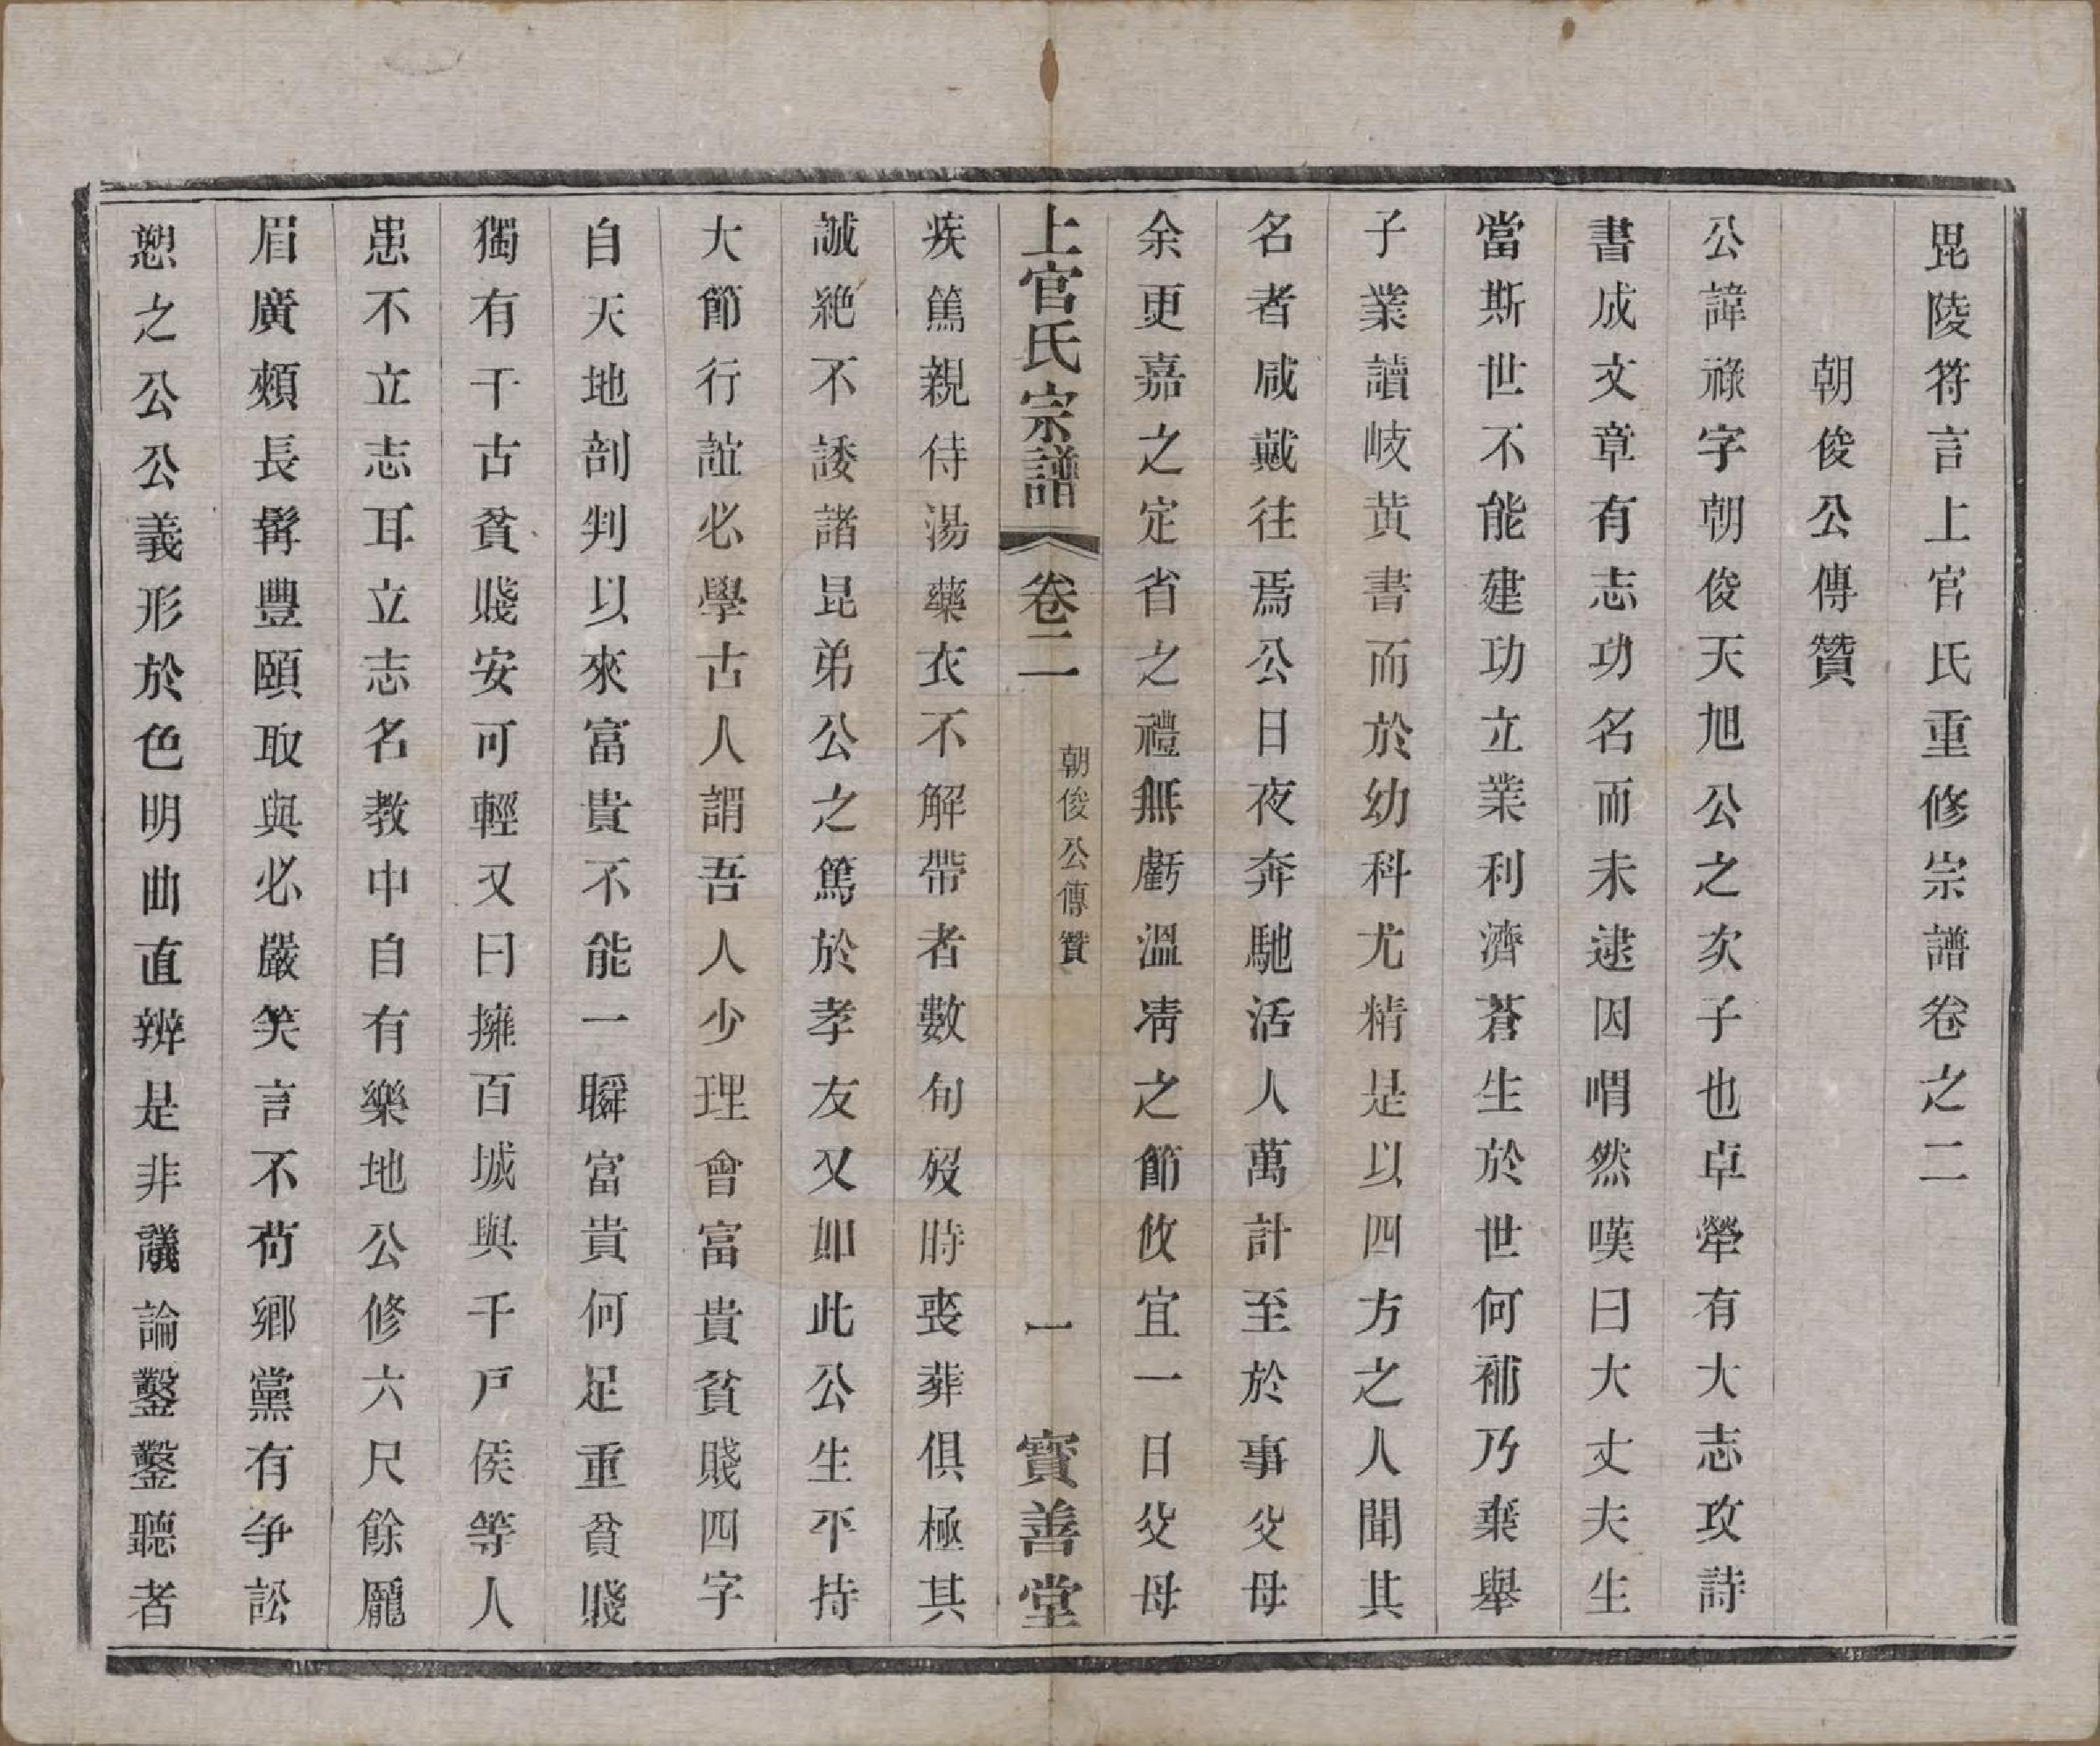 毘陵符言上官氏重修宗譜卷之二
朝俊公傳贊
公諱祿字朝俊天旭公之次子也卓犖有大志攻詩
書成文章有志功名而未逮因喟然嘆曰大丈夫生
當斯世不能建功立業利濟蒼生於世何補乃棄舉
子業讀岐黃書而於幼科尤精是以四方之人聞其
名者咸戴往焉公日夜奔馳活人萬計至於事父母
余更嘉之定省之禮無虧溫凊之節攸宜一日父母
上官氏宗譜 卷二 朝俊公傳贊 一 寶善堂
疾篤親侍湯藥衣不解帶者數旬歿時喪葬俱極其
誠絶不諉諸昆弟公之篤於孝友又如此公生平持
大節行誼必學古人謂吾人少理會富貴貧賤四字
自天地剖判以來富貴不能一瞬富貴何足重貧賤
獨有千古貧賤安可輕又曰擁百城與千戸侯等人
患不立志耳立志名教中自有樂地公修六尺餘龎
眉廣頰長髯豐頤取與必嚴笑言不苟鄉黨有争訟
愬之公公義形於色明曲直辨是非議論鑿鑿聽者